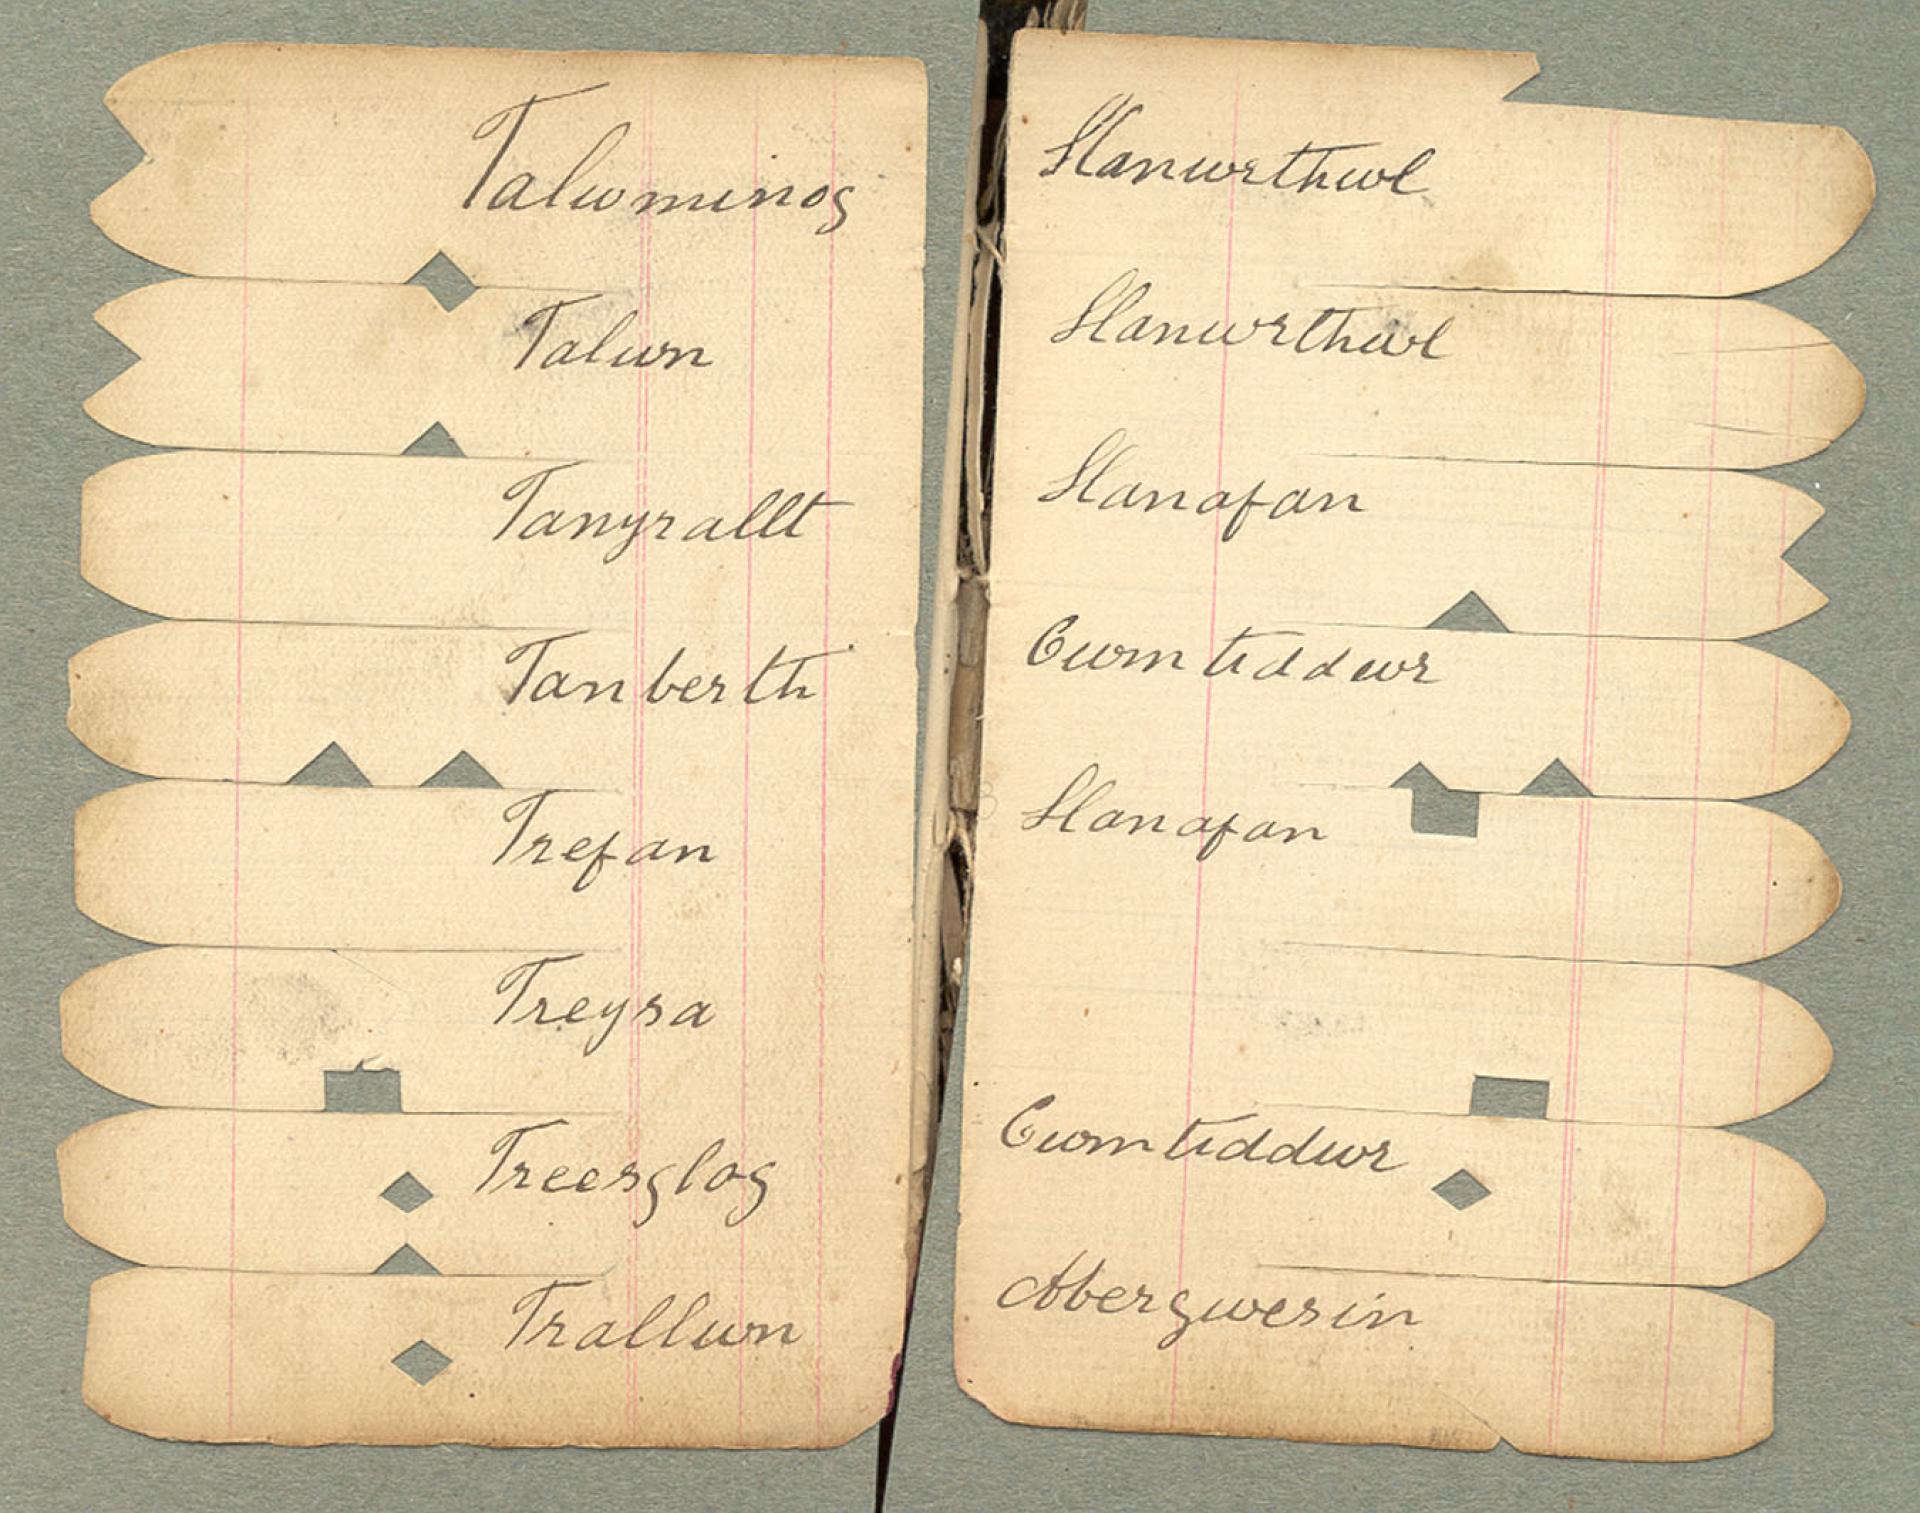 Talwminog
Talwn
Tanyrallt
Tanberth
Trefan
Treysa
Treesglog
Trallwn
Llanwrthwl
Llanwrthwl
Llanafan
Cwmtiddwr
Llanafan
Cwmtiddwr
Abergwesin